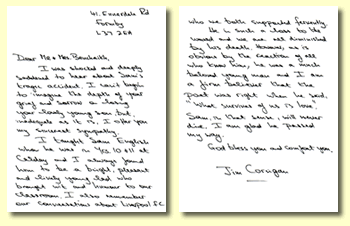 41. Ennerdale Rd
Formby
L37 2EA
Dear Mr & Mrs.
I was shocked and deeply
saddened to hear about Sam's
tragic accident. I can't begin
to imagine the depth of your
grief and sorrow in losing
your lovely young son but,
inadequate as it is, I offer you
my sincerest sympathy.
I taught Sam English
when he was in Yrs 10 & 11 at
Calday and I always found
him to be a bright, pleasant
and lively young lad who
brought wit and humour to our
classroom. I also remember
our conversation about Liverpool F.C.
who we both supported fervently.
He is such a loss to the
world and we are all diminished
by his death. However, as is
obvious by the reaction of all
who knew him, he was a much
beloved young man and I am
a firm believer that the
poet was right when he said,
"What survives of us is love".
Sam, in that sense, will never
die. I am glad he passed
my way.
God bless you and comfort you.
Jim Corrigan